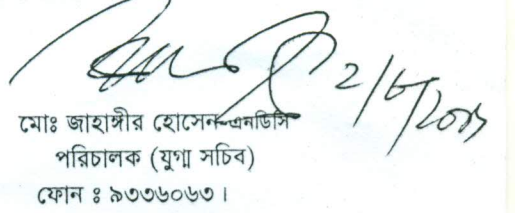 মোঃ জাহাঙ্গীর হোসেন এনডিসি
পরিচালক (যুগ্ম সচিব)
ফোন ঃ ৯৩৩৬০৬৩।